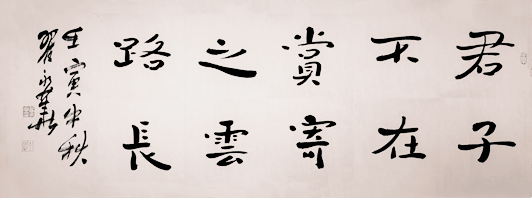 君子
不在
賞寄
之雲
路長
壬寅中秋